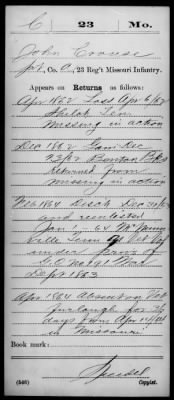 C 23 Mo.
John Crouse
Pvt, Co. C, 23 Reg't Missouri Infantry.
Appears on Returns as follows:
Apr 1862 Loss Apr 6/62
Shiloh Tenn
Missing in action
Dec 1862 Gain Dec
23/62 Benton Bks
Returned from
missing in action
Feb 1864 Disch Dec 31/63
and reenlisted
Jan 1, 64 McMinn
ville Tenn as Vet Vol
under Prov of
G.O. No 191 War
Dept 1863
Apr 1864 Absent on Vet
furlough for
days from Apr
in Missouri
Book mark:
(546) Copyist.